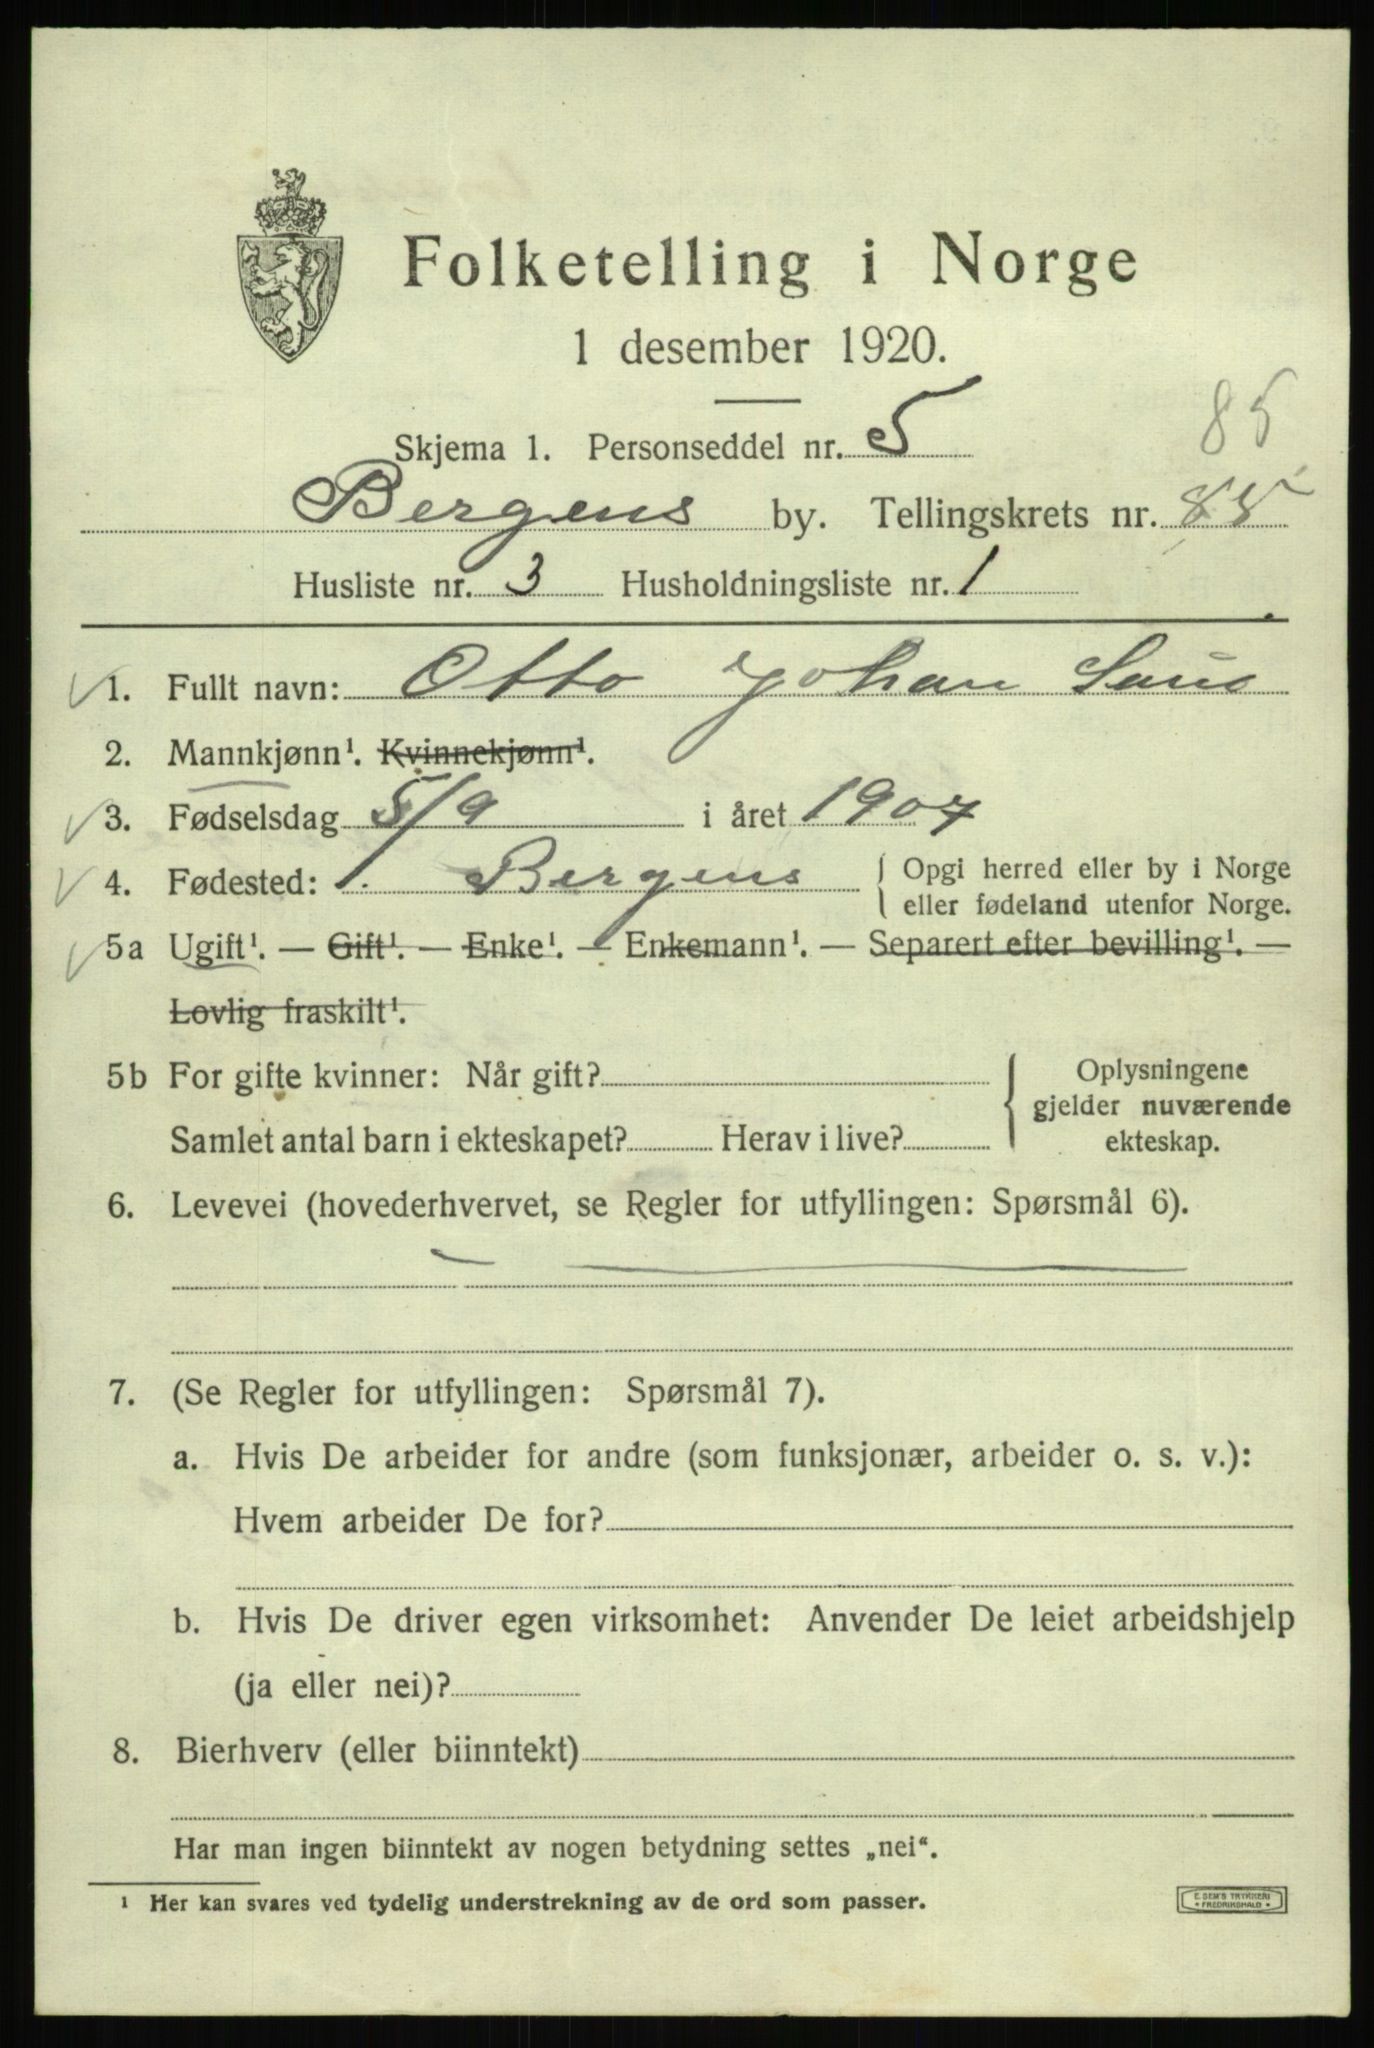 Folketelling i Norge
1 desember 1920.
85
Skjema 1. Personseddel nr. 5
Bergens by. Tellingskrets nr. 85
Husliste nr. 3 Husholdningsliste nr. 1
1. Fullt navn: Otto Johan
2. Mannkjønn¹. Kvinnekjønn¹.
3. Fødselsdag 5/9 i året 1907
4. Fødested: Bergens { Opgi herred eller by i Norge
eller fødeland utenfor Norge.
5a Ugift¹. — Gift¹. — Enke¹. — Enkemann¹. — Separert efter bevilling¹. —
Lovlig fraskilt¹.
5b For gifte kvinner: Når gift? { Oplysningene
gjelder nuværende
Samlet antal barn i ekteskapet? Herav i live? ekteskap.
6. Levevei (hovederhvervet, se Regler for utfyllingen: Spørsmål 6).
7. (Se Regler for utfyllingen: Spørsmål 7).
a. Hvis De arbeider for andre (som funksjonær, arbeider o. s. v.):
Hvem arbeider De for?
b. Hvis De driver egen virksomhet: Anvender De leiet arbeidshjelp
(ja eller nei)?
8. Bierhverv (eller biinntekt)
Har man ingen biinntekt av nogen betydning settes „nei“.
¹ Her kan svares ved tydelig understrekning av de ord som passer.
E. SEM'S TRYKKERI
• FREDRIKSHALD •